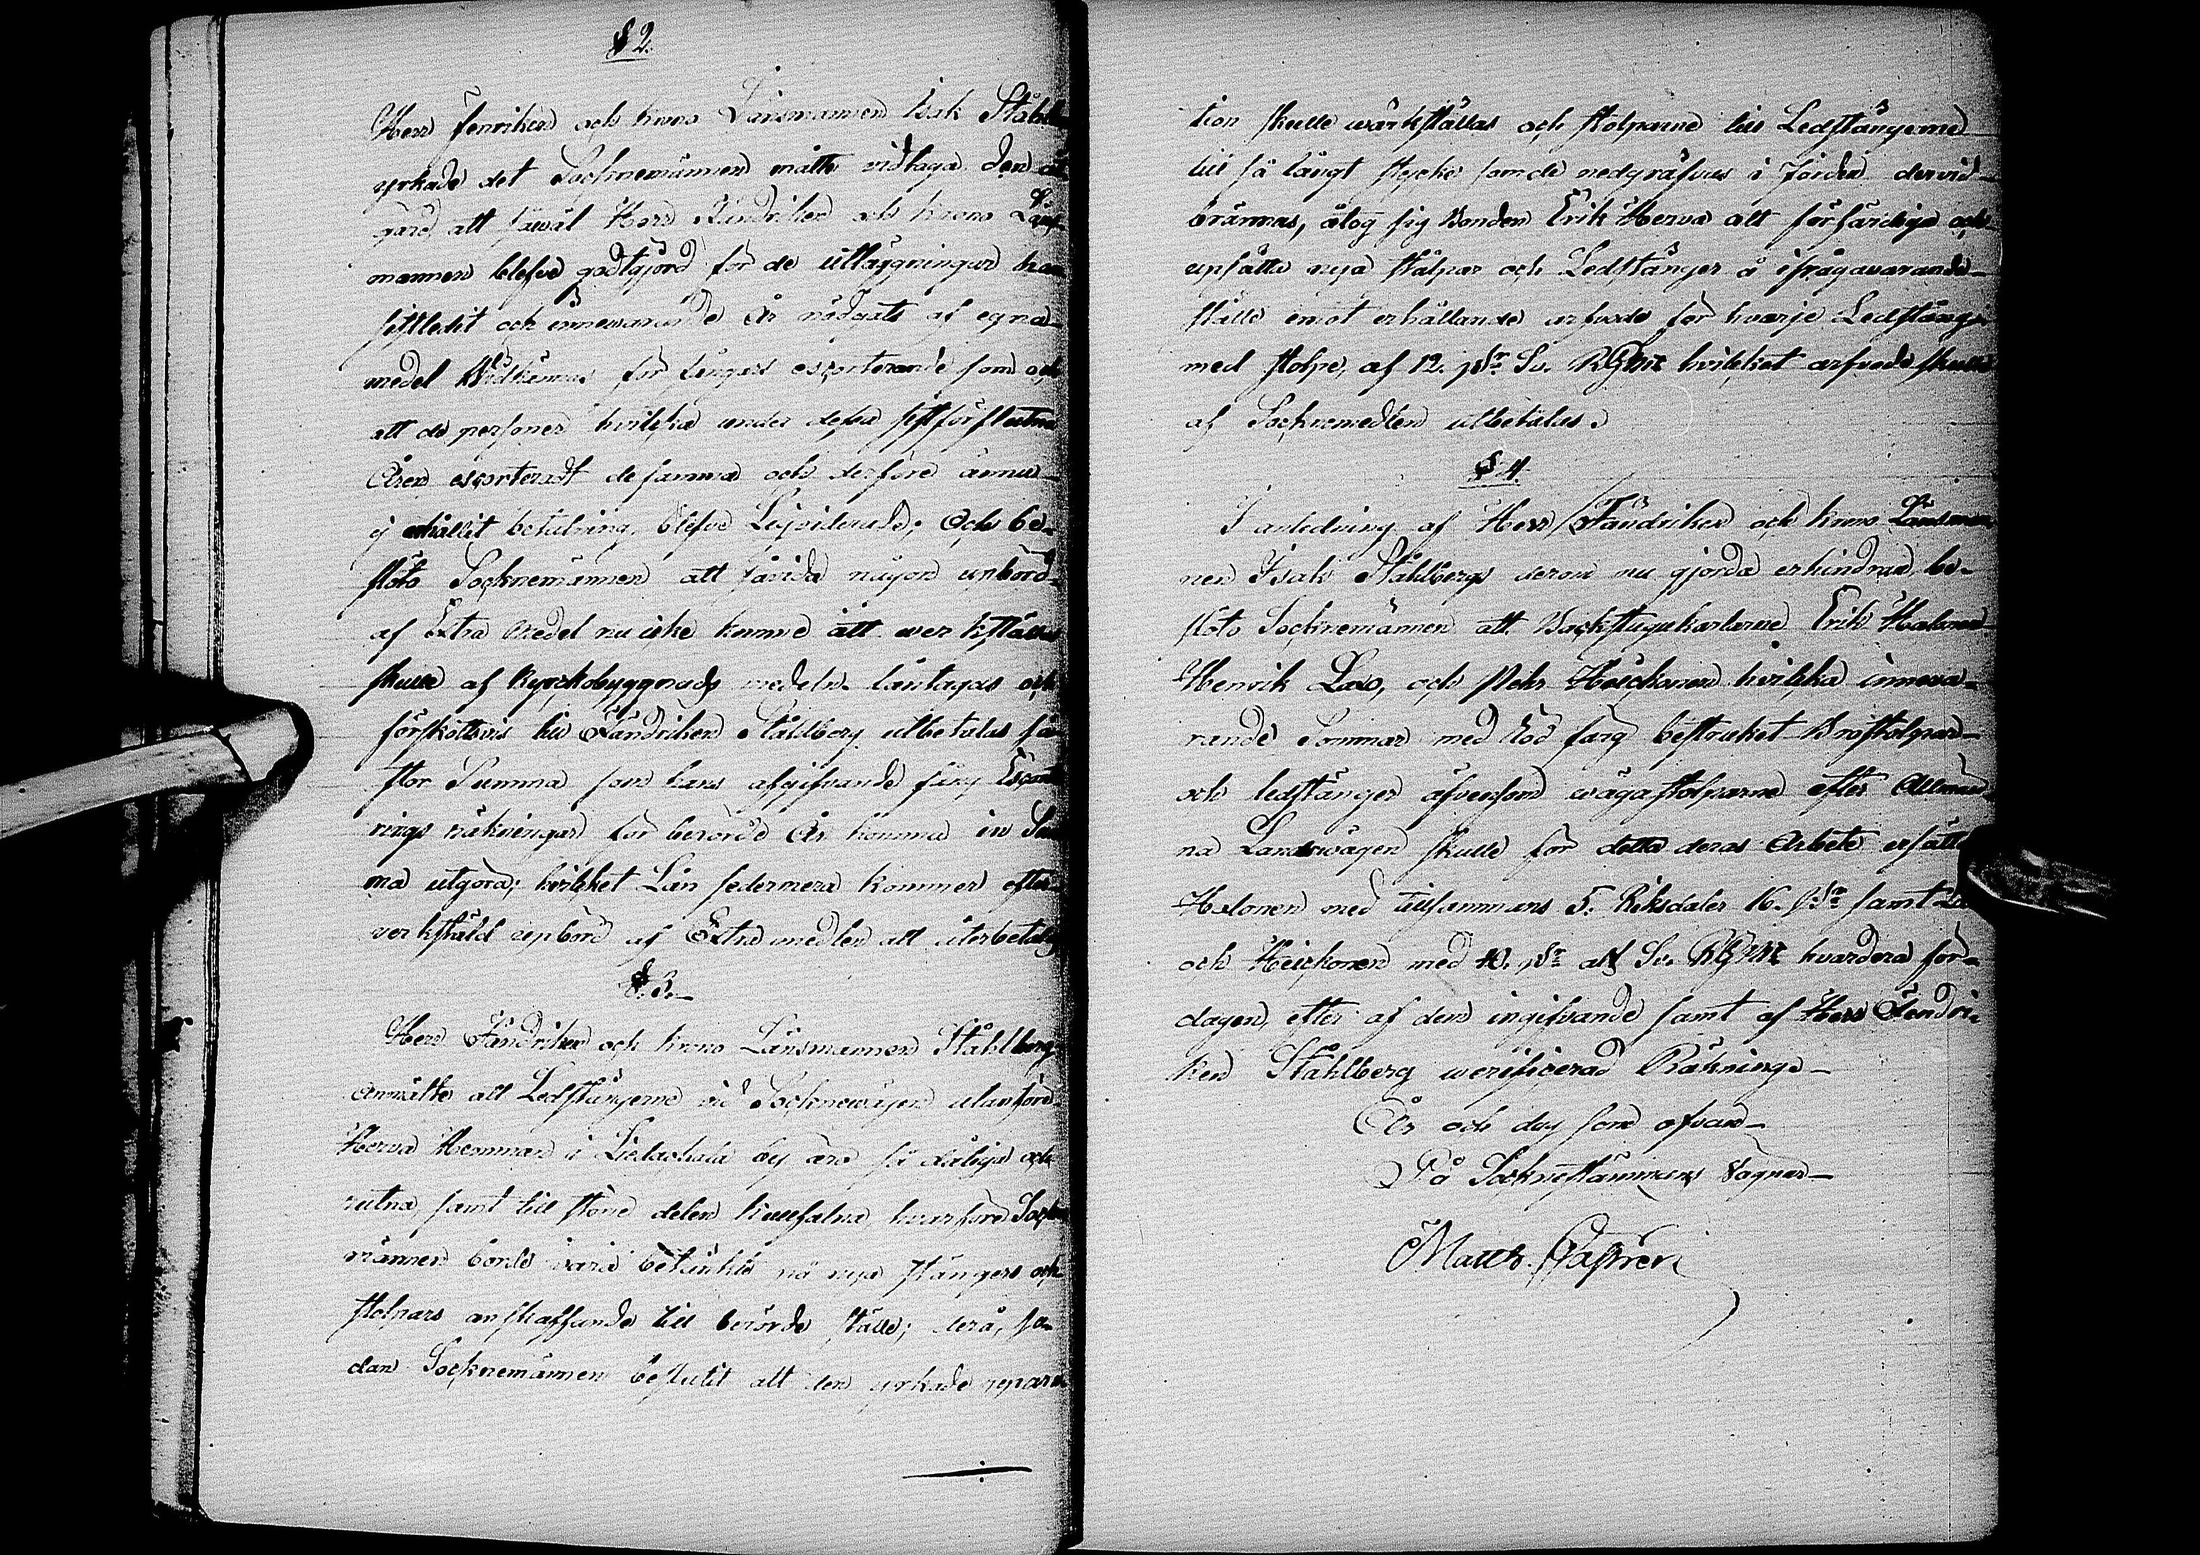 § 2.
Herr Fenriken och krono Länsmannen Isak Ståhl
yrkade det Socknemännen måtte vidtaga den åt
gärd, att såwäl Herr Fändriken och krono Läns-
mannen blefve godtgjord för de utläggningar han
sistledit och innewarande År nödgats af egna
medel vidkännas för fångars escorterande som ock
att de personer hvilka under desse sist förflutna
Åren escorteradt de samma och derföre ännu
ej erhållit betalning, blefve Liqviderade; Och be-
slöto Socknemännen att såvida någon upbörd
af Extra medel nu icke kommo att verkställas
skulle af Kyrckobyggnads medeln låntagas och
förskottsvis till Fändriken Ståhlberg utbetalas så
stor Summa som hans afgifvande fång Escorte
rings räkningar för berörde År komma in Sum
ma utgöra; hvilcket Lån sedermera kommer efter
verkstäld upbörd af Extra medlen att återbetalas
§. 3.
Herr Fändriken och krono Länsmannen Ståhlberg
Anmälte att Ledstängerne vid Socknewägen utanföre
Herva Hemman i Lielachala by äro så dåliga och
rutna samt till större delen kullfalna, hvarföre Sockne
männen borde vara betänkte på nya stängers och
stolpars anskaffande till berörde ställe; derå, se-
dan Socknemännen beslutit att den yrkade repara
tion skulle wärkställas och stolparne till Ledstängerne
till så långt stycke som de nedgräfvas i jorden dervid
brännas, åtog sig Bonden Erik Herva att förfärdiga och
upsätta nya stålpar och Ledstänger å ifrågavarande
ställe emot erhållande arfvode för hvarje Ledstång
med stolpe, af 12. sk. Sv. RGMt hvilcket arfvode skulle
af Sockne medlen utbetalas.
§ 4.
I anledning af Herr Fändriken och krono Länsman
nen Isak Ståhlbergs derom nu gjorda erhindran, be-
slöto Socknemännen att Backstugukarlarne Erik Halonen
Henrik Laxo, och Pehr Heickonen hvilcka inneva-
rande Sommar med röd färg bestrukit Brostolpar
och ledstänger äfvensom wägastolparne efter Allmän
na Landswägen skulle för detta deras Arbete ersättas
Halonen med tillsammans 5. Riksdaler 16. sk. samt La
och Heickonen med 10. sk. allt Sv. RGMt hvardera för
dagen, efter af dem ingifvande samt af Herr Fendri-
ken Ståhlberg werificerad Räkninge
År och dag som ofvan
På Socknestämmans vägnar
Matth. Castrén